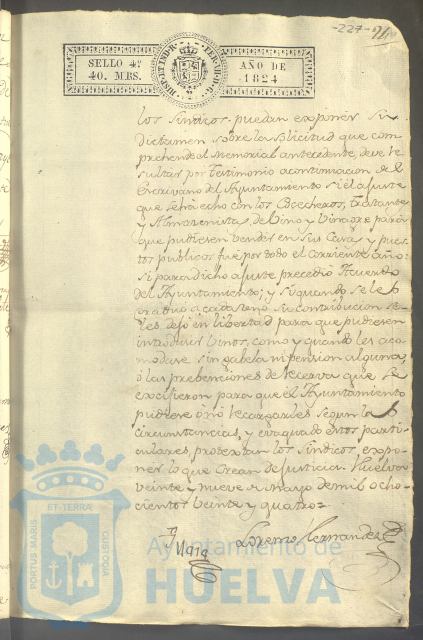 -227-
SELLO 4º
40. MRS.
HISP. ET IND. R. FERD. VII. D. G.
AÑO DE
1824
los Sindicos puedan exponer su
dictamen sobre la solicitud que com
prehende el Memorial antecedente, deve re
sultar por testimonio a continuacion de el
Escrivano del Ayuntamiento si el ajuste
que se ha echo con los Cosecheros, tratantes
y Almacenistas, de Vino y Vinagre para
que pudiesen vender en sus Casas y pues
tos publicos fue por todo el corriente año:
si para dicho ajuste precedio Acuerdo
del Ayuntamiento; y si quando se le
a cada uno su contribucion se
les dejó en libertad para que pudiesen
introducir Vinos, como y quando les aco
modase sin gabela ni pension alguna,
ó las prebenciones de reserva que se
hicieron para que el Ayuntamiento
pudiese ó nó recargarles segun las
circunstancias, y evaquado estos parti
culares, protextan los Sindicos, expo
ner lo que crean de justicia. Huelva
veinte y nueve de Mayo de mil ocho
cientos veinte y quatro=
Lorenzo Hernandez
PORTUS MARIS ET TERRÆ CUSTODIA
Ayuntamiento de
HUELVA